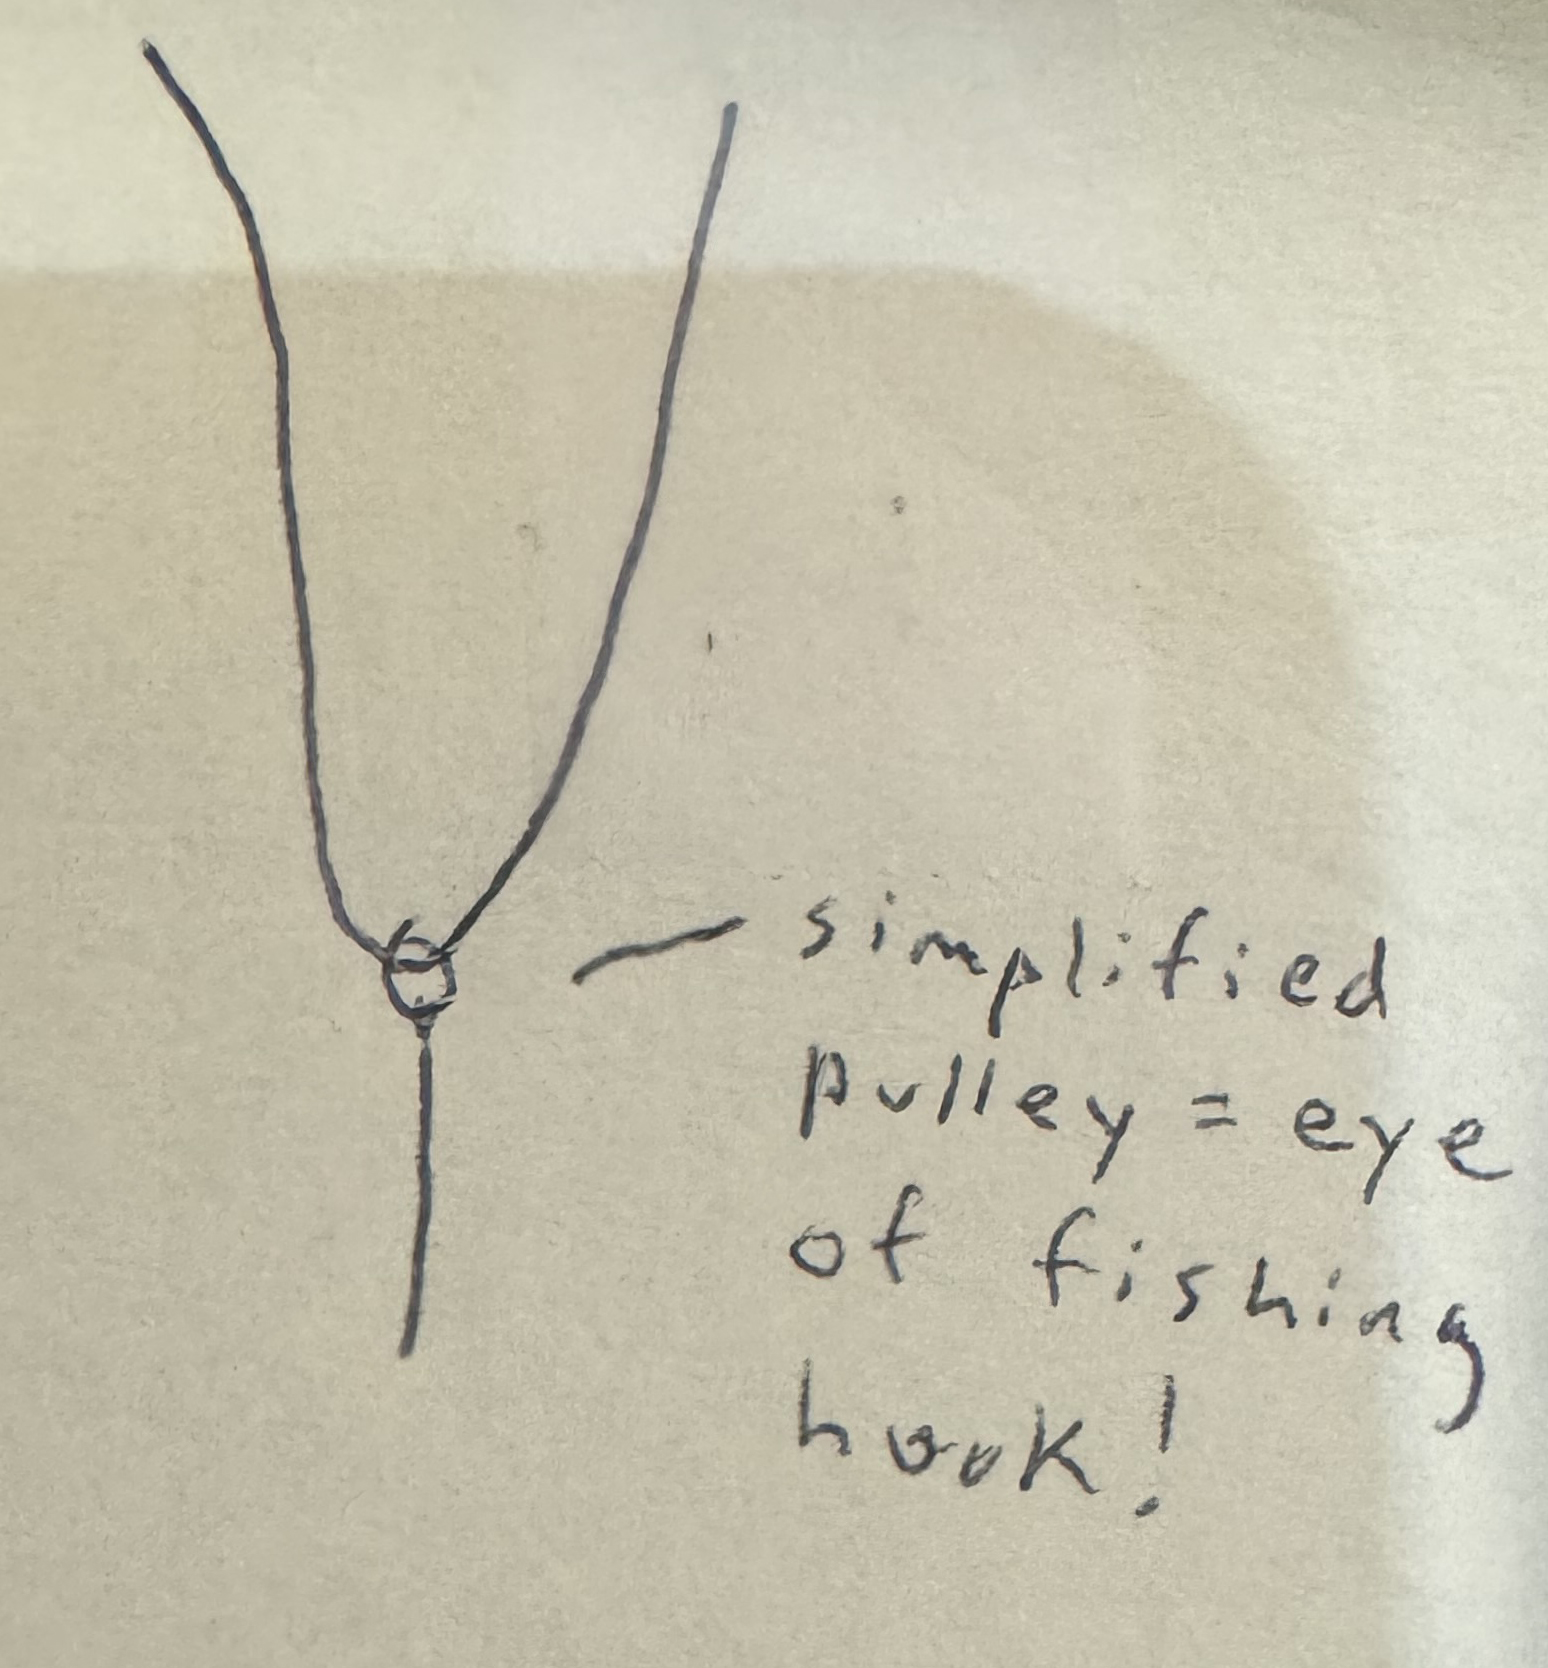 simplified
pulley = eye
of fishing
hook!